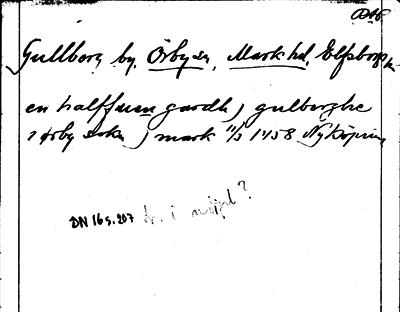 Gullberg by, Örby sn, Mark hd, Elfsborgs
en halffman gardh j gulberghe
i örby sokn j mark 11/3 1458 Nyköping
DN 16 s. 207